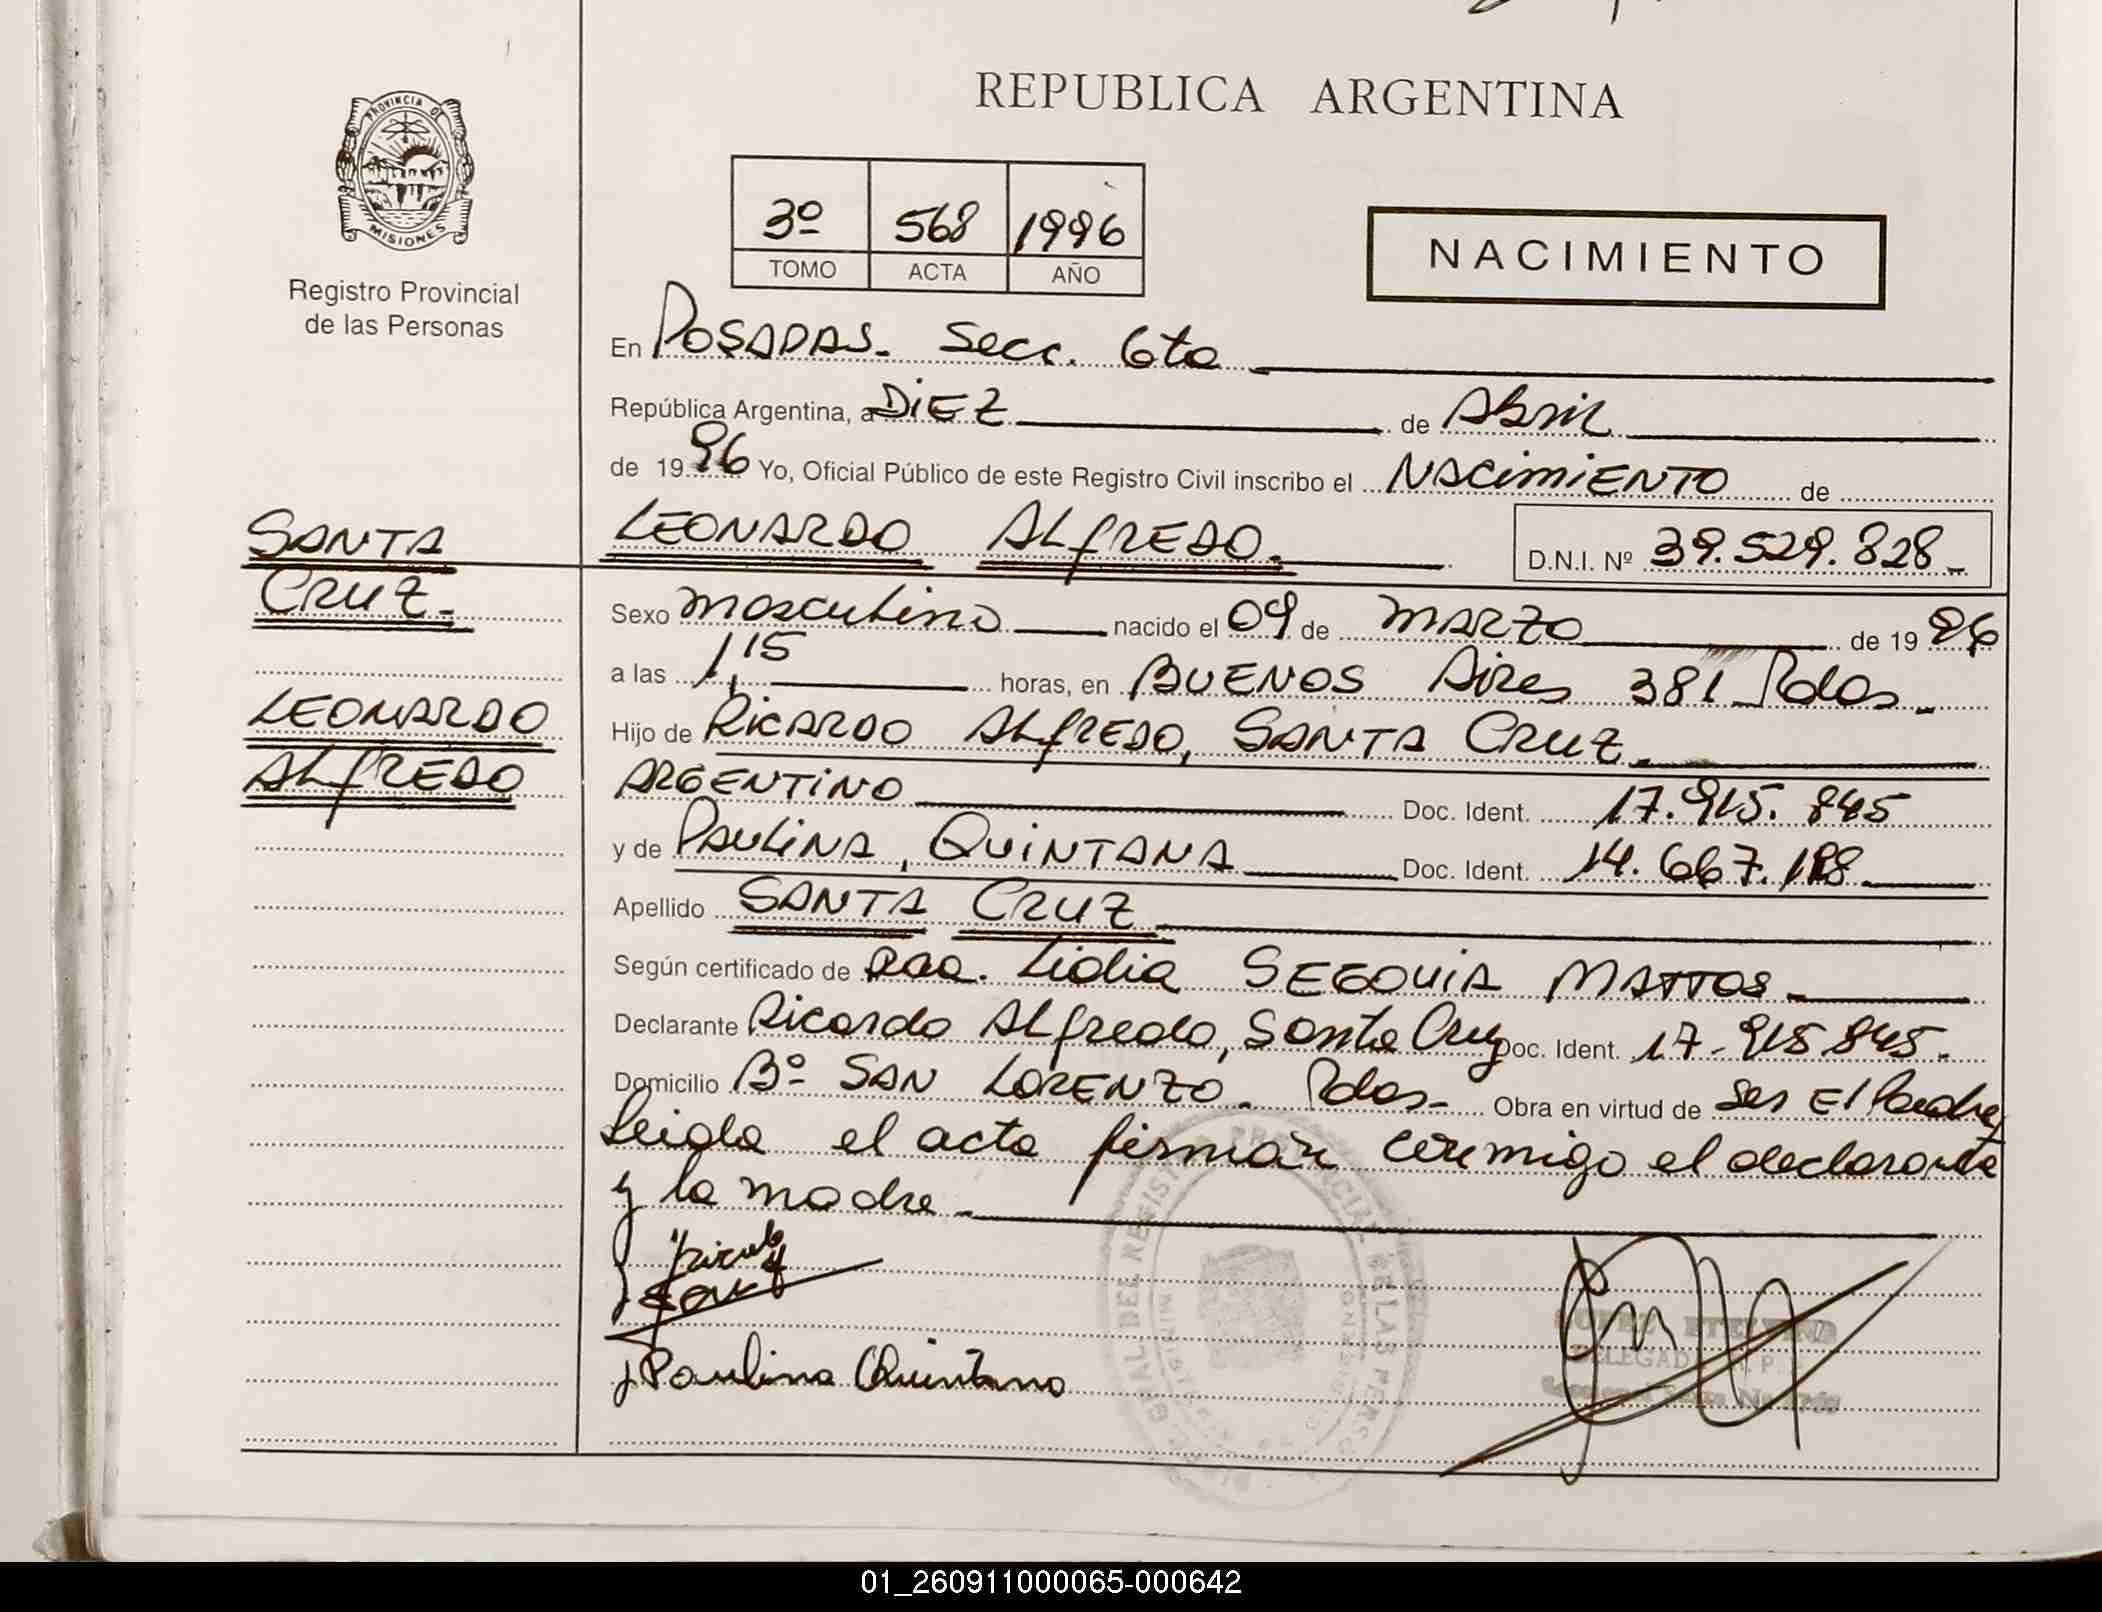 REPUBLICA ARGENTINA
PROVINCIA DE
MISIONES
Registro Provincial
de las Personas
3º 568 1996
TOMO ACTA AÑO
NACIMIENTO
En POSADAS. Secc. 6ta
República Argentina, a DIEZ de Abril
de 1996 Yo, Oficial Público de este Registro Civil inscribo el NACIMIENTO de
SANTA
CRUZ.
LEONARDO
ALFREDO
LEONARDO ALFREDO. D.N.I. Nº 39.529.828
Sexo masculino nacido el 09 de MARZO de 1996
a las 1,15 horas, en BUENOS Aires 381 Pdas.
Hijo de RICARDO ALFREDO, SANTA CRUZ.
ARGENTINO Doc. Ident. 17.915.845
y de PAULINA, QUINTANA Doc. Ident. 14.667.188
Apellido SANTA CRUZ
Según certificado de Lidia SEGOVIA MATTOS
Declarante Ricardo Alfredo, Santa Cruz Doc. Ident. 17.915 845.
Domicilio Bº SAN LORENZO. Pdas. Obra en virtud de ser El Padre,
Leida el acta firman conmigo el declarante
y la madre
Paulina Quintana
LOPEZ
DELEGAD